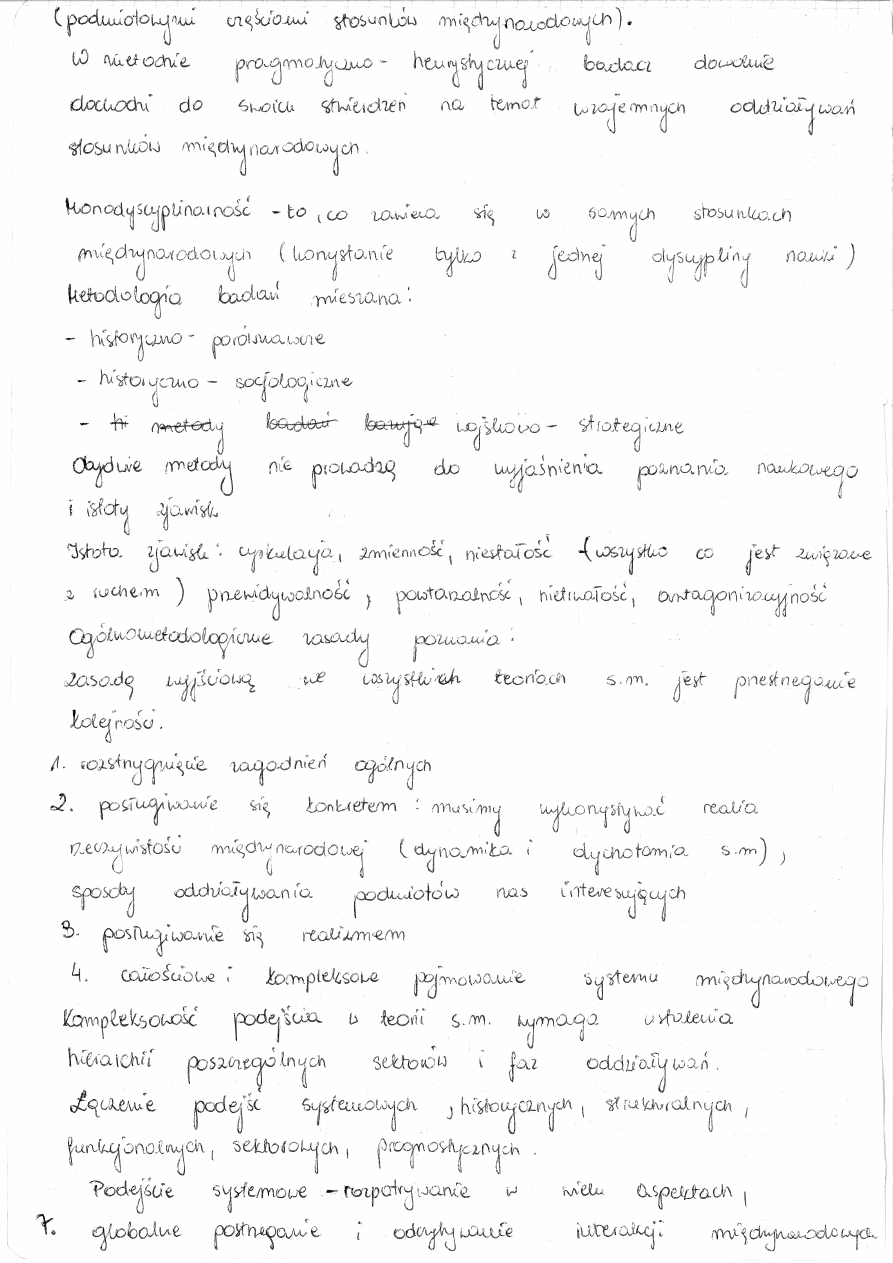 (podmiotowymi częściami stosunków międzynarodowych).
W metodzie pragmatyczno - heurystycznej badacz dowolnie
dochodzi do swoich stwierdzeń na temat wzajemnych oddziaływań
stosunków międzynarodowych.
Monodyscyplinarność - to, co zawiera się w samych stosunkach
międzynarodowych (korzystanie tylko z jednej dyscypliny nauki)
Metodologia badań mieszana:
- historyczno - porównawcze
- historyczno - socjologiczne
- hi metody badań bazujące wojskowo - strategiczne
Obydwie metody nie prowadzą do wyjaśnienia poznania naukowego
i istoty zjawisk
Istota zjawisk: cyrkulacja, zmienność, niestałość (wszystko co jest związane
z ruchem) przewidywalność, powtarzalność, nietrwałość, antagonizacyjność
Ogólnometodologiczne zasady poznania:
zasadą wyjściową we wszystkich teoriach s.m. jest przestrzeganie
kolejności.
1. rozstrzygnięcie zagadnień ogólnych
2. posługiwanie się konkretem: musimy wykorzystywać realia
rzeczywistości międzynarodowej (dynamika i dychotomia s.m),
sposoby oddziaływania podmiotów nas interesujących
3. posługiwanie się realizmem
4. całościowe i kompleksowe pojmowanie systemu międzynarodowego
Kompleksowość podejścia w teorii s.m. wymaga ustalenia
hierarchii poszczególnych sektorów i faz oddziaływań.
Łączenie podejść systemowych, historycznych, strukturalnych,
funkcjonalnych, sektorowych, prognostycznych.
Podejście systemowe - rozpatrywanie w wielu aspektach,
7. globalne postrzeganie i odkrywanie interakcji międzynarodowych